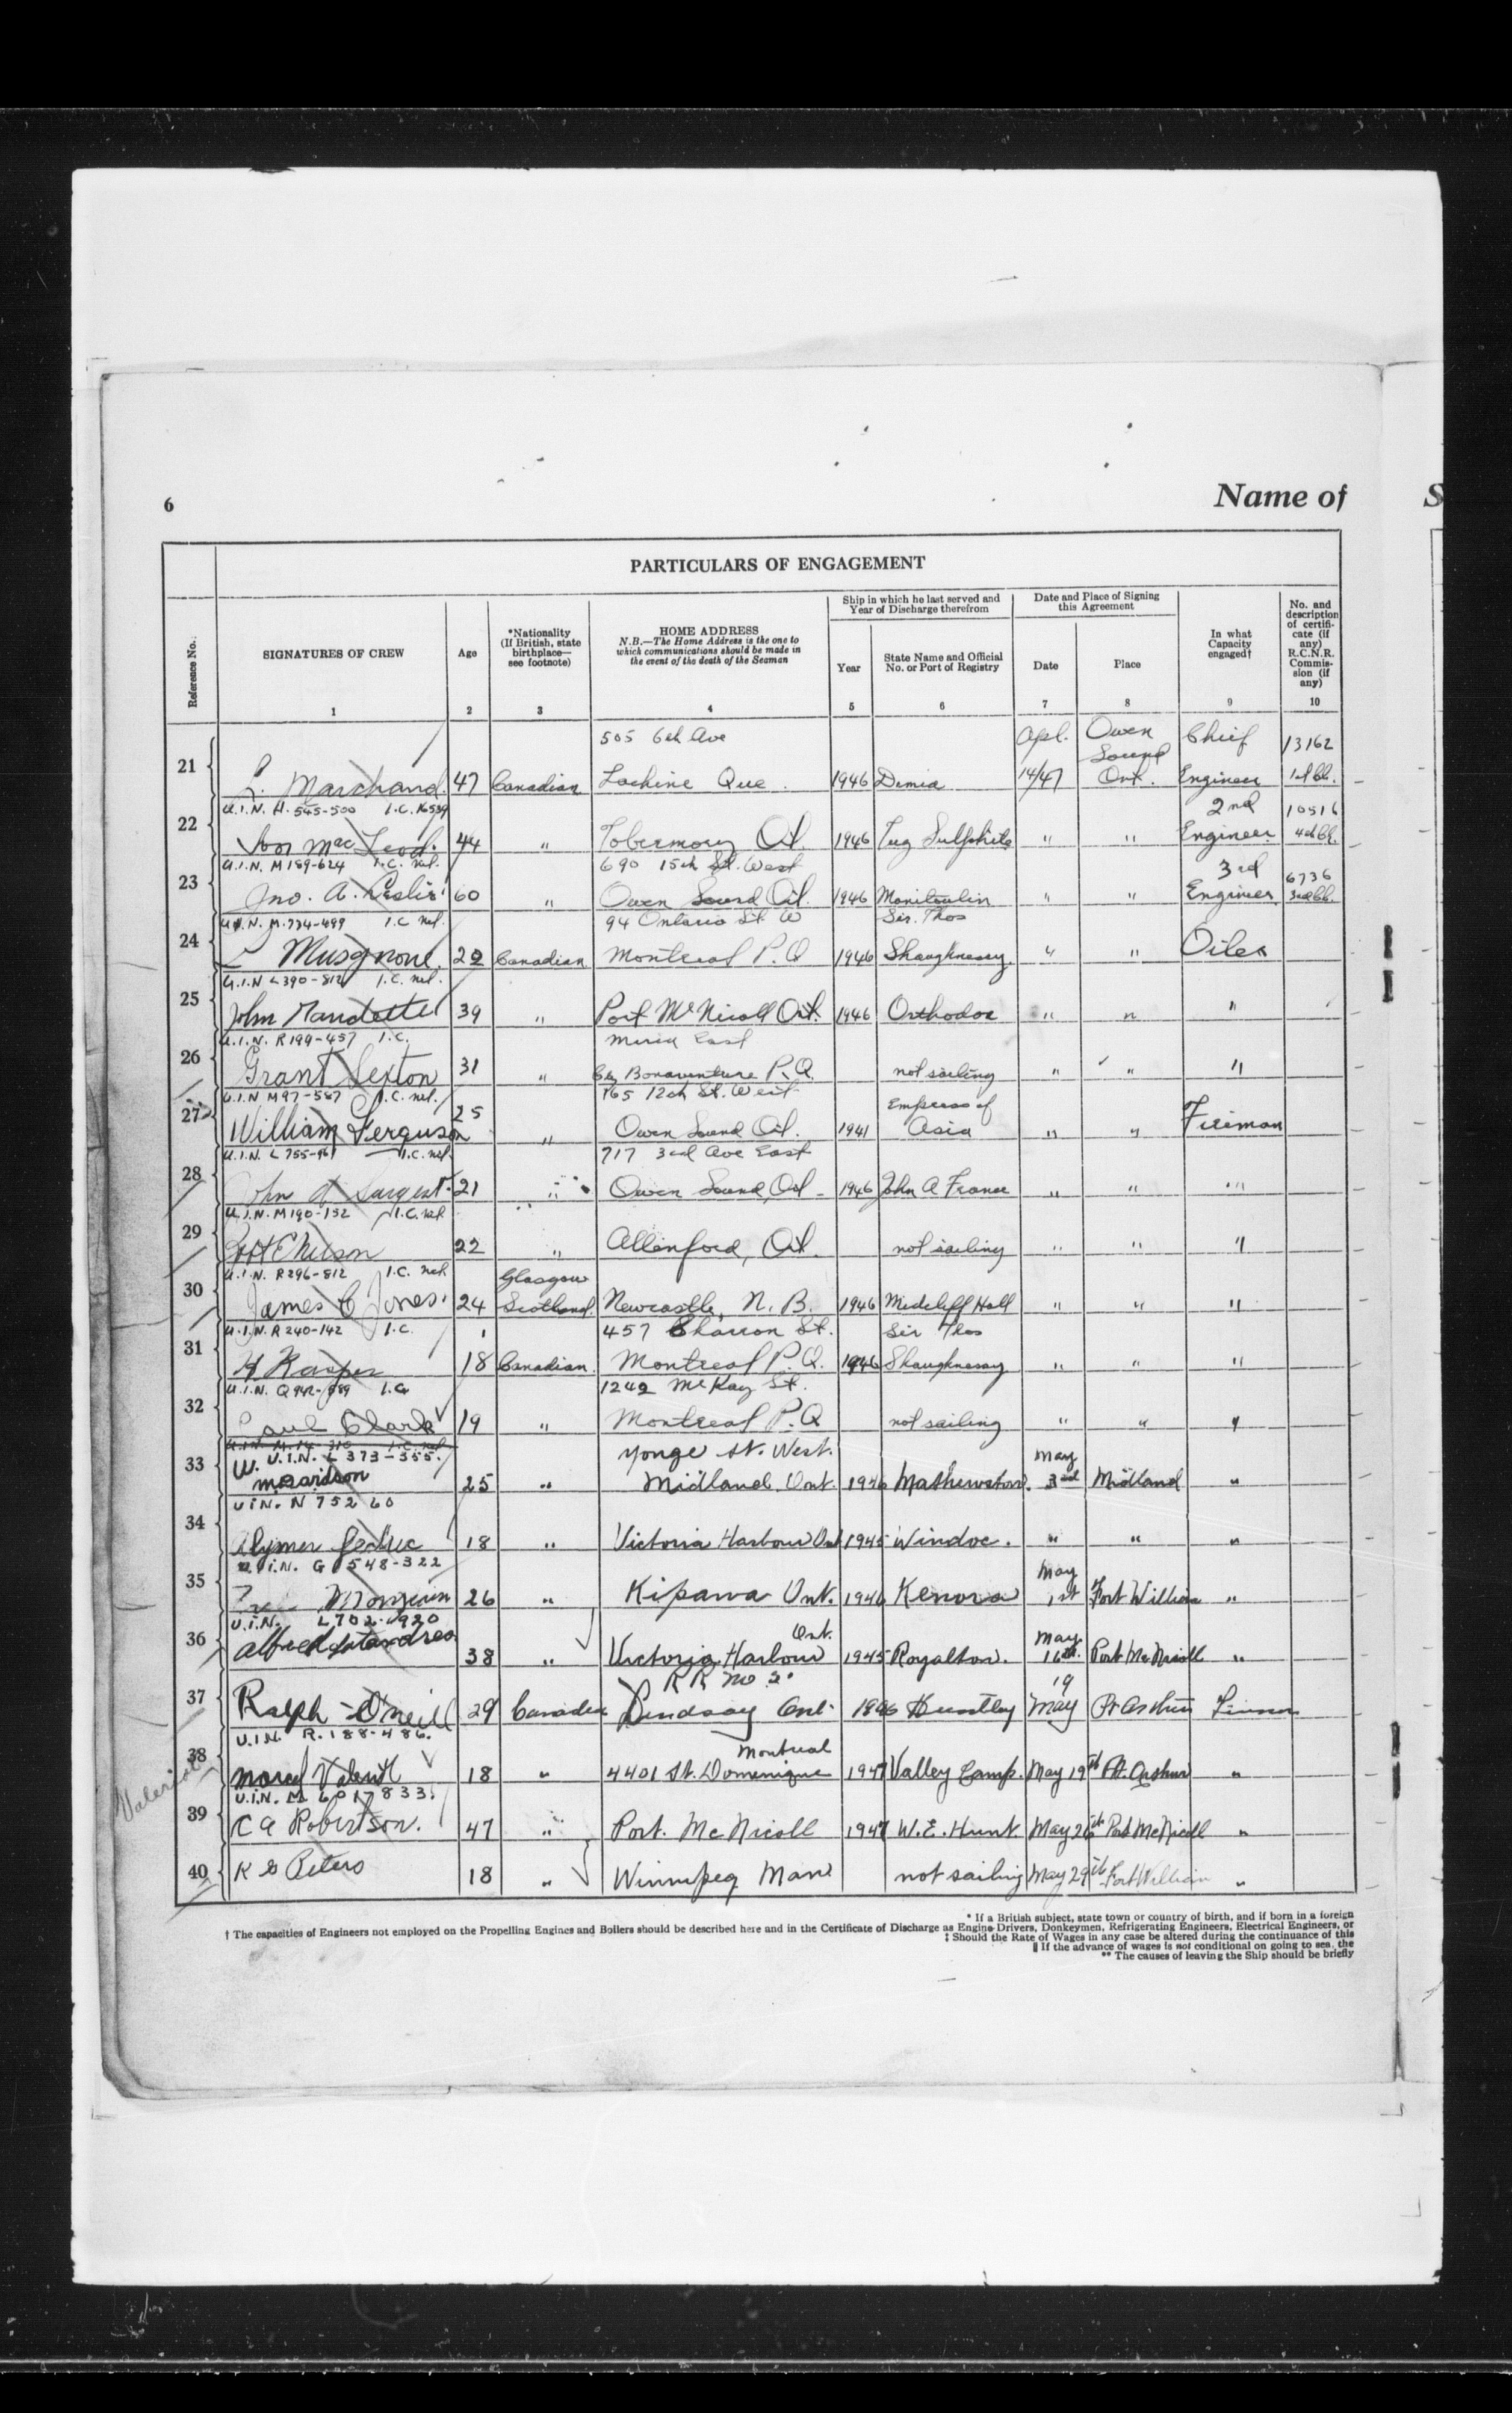 6
Name of
S
PARTICULARS OF ENGAGEMENT
Reference No.
SIGNATURES OF CREW
1
Age
2
*Nationality
(If British, state
birthplace—
see footnote)
3
HOME ADDRESS
N.B.—The Home Address is the one to
which communications should be made in
the event of the death of the Seaman
4
Ship in which he last served and
Year of Discharge therefrom
Year
5
State Name and Official
No. or Port of Registry
6
Date and Place of Signing
this Agreement
Date
7
Place
8
In what
Capacity
engaged†
9
No. and
description
of certifi-
cate (if
any)
R.C.N.R.
Commis-
sion (if
any)
10
505 6th Ave Apl. Owen Sound Chief 13162
21 L. Marchand. 47 Canadian Lachine Que. 1946 Donnia 14/47 Ont. Engineer
U.I.N. H. 545-500 I.C. 2nd 10516
22 Mac Leod. 44 " Tobermory Ont. 1946 Tug Sulphite " " Engineer
U.I.N. M189-624 I.C. nil. 690 15th St. West 3rd 6736
23 Jno. A. Leslie 60 " Owen Sound Ont. 1946 Manitoulin " " Engineer
U.I.N. M.734-499 I.C. nil. 94 Ontario St W Sir. Thos
24 L Musgrove 22 Canadian Montreal P.Q 1946 Shaughnessy " " Oiler
U.I.N L390-812 I.C. nil.
25 John 39 " Port McNicoll Ont. 1946 Orthodoc " " "
U.I.N. R199-457 I.C. East
26 Grant Sexton 31 " Bonaventure P.Q. not sailing " " "
U.I.N M97-587 I.C. nil. 765 12th St. West Empress of
27 William Ferguson 25 " Owen Sound Ont. 1941 Asia " " Fireman
U.I.N. L755-961 I.C. nil. 717 3rd Ave East
28 John Sargent. 21 " Owen Sound, Ont - 1946 John A France " " "
U.I.N. M190-152 I.C. nil.
29 22 " Allenford, Ont. not sailing " " "
U.I.N. R296-812 I.C. nil Glasgow
30 James C Jones 24 Scotland. Newcastle, N.B. 1946 Midcliff Hall " " "
U.I.N. R240-142 I.C. 457 Charron St. Sir Thos
31 18 Canadian. Montreal P.Q. 1946 Shaughnessy " " "
U.I.N. Q942-989 I.C. 1242 McKay St.
32 Paul Clark 19 " Montreal P.Q not sailing " " "
U.I.N. L373-355. Yonge St. West. May
33 W. 25 " Midland. Ont. 1946 Mathewston. 3rd Midland "
U.I.N. N 752 60
34 Leduc 18 " Victoria Harbour Ont 1945 Windoc. " " "
U.I.N. G 548-322 May
35 26 " Kipawa Ont. 1946 Kenora 1st Fort William "
U.I.N. L702-920 Ont. May
36 Alfred 38 " Victoria Harbour 1945 Royalton. 16th. Port McNicoll "
R R No 2. 19
37 Ralph O'neill 29 Canadian Lindsay Ont. 1896 Huntley May Pt Arthur
U.I.N. R.188-486. Montreal
38 Marcel 18 " 4401 St. Domenique 1947 Valley Camp. May 19th Pt. Arthur "
U.I.N. M 6017833.
39 C A Robertson. 47 " Port. McNicoll 1947 W.E. Hunt. May 26th Port McNicoll "
40 K G Peters 18 " Winnipeg Man not sailing May 29th Fort William "
* If a British subject, state town or country of birth, and if born in a foreign
† The capacities of Engineers not employed on the Propelling Engines and Boilers should be described here and in the Certificate of Discharge as Engine Drivers, Donkeymen, Refrigerating Engineers, Electrical Engineers, or
‡ Should the Rate of Wages in any case be altered during the continuance of this
‖ If the advance of wages is not conditional on going to sea, the
** The causes of leaving the Ship should be briefly